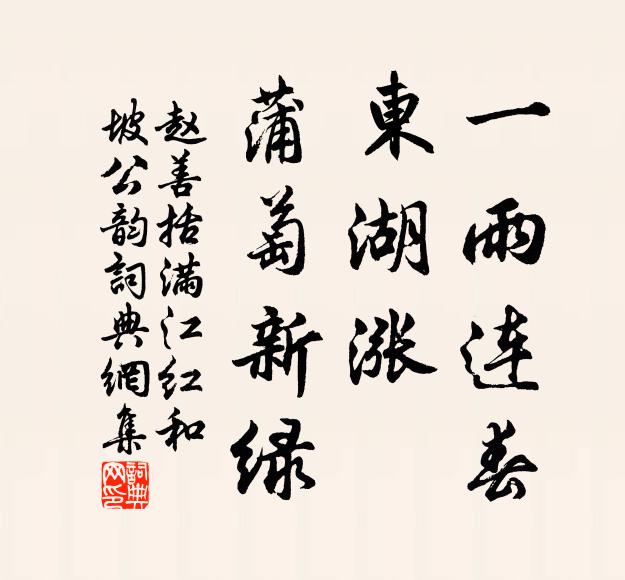 一雨连春
東湖涨
蒲萄新绿
赵善括满江红和
坡公韵詞典網集
詞典网印